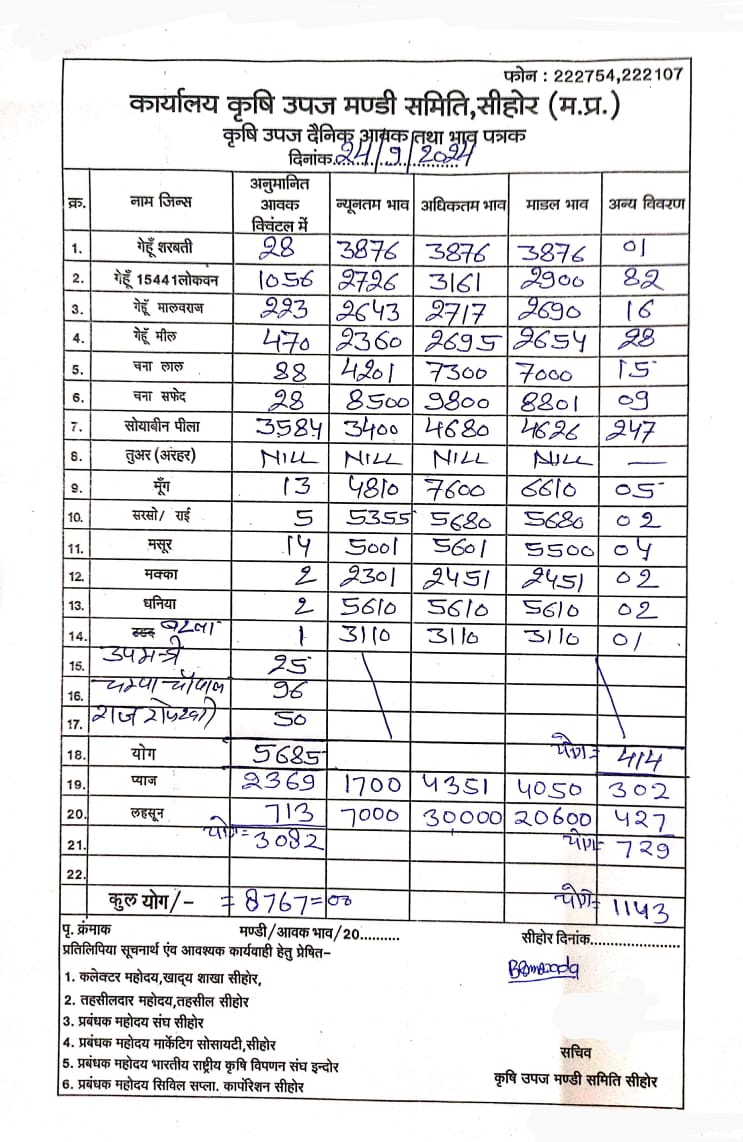 फोन : 222754,222107
कार्यालय कृषि उपज मण्डी समिति,सीहोर (म.प्र.)
कृषि उपज दैनिक आवक तथा भाव पत्रक
दिनांक 24/9/2024
क्र. नाम जिन्स अनुमानित आवक क्विंटल में न्यूनतम भाव अधिकतम भाव माडल भाव अन्य विवरण
1. गेहूँ शरबती 28 3876 3876 3876 01
2. गेहूँ 15441लोकवन 1056 2726 3161 2900 82
3. गेहूँ मालवराज 223 2643 2717 2690 16
4. गेहूँ मील 470 2360 2695 2654 28
5. चना लाल 88 4201 7300 7000 15
6. चना सफेद 28 8500 9800 8801 09
7. सोयाबीन पीला 3584 3400 4680 4626 247
8. तुअर (अरहर) NILL NILL NILL NILL —
9. मूँग 13 4810 7600 6610 05
10. सरसो/ राई 5 5355 5680 5680 02
11. मसूर 14 5001 5601 5500 04
12. मक्का 2 2301 2451 2451 02
13. धनिया 2 5610 5610 5610 02
14. बटला 1 3110 3110 3110 01
15. उपमन्डी 25
16. चौपाल 96
17. राज 50
18. योग 5685 योग= 414
19. प्याज 2369 1700 4351 4050 302
20. लहसून 713 7000 30000 20600 427
21. योग= 3082 योग= 729
22.
कुल योग/- = 8767=00 योग= 1143
पृ. क्रंमाक मण्डी/आवक भाव/20.......... सीहोर दिनांक......................
प्रतिलिपिया सूचनार्थ एंव आवश्यक कार्यवाही हेतु प्रेषित-
1. कलेक्टर महोदय,खाद्य शाखा सीहोर,
2. तहसीलदार महोदय,तहसील सीहोर
3. प्रबंधक महोदय संघ सीहोर
4. प्रबंधक महोदय मार्केटिग सोसायटी,सीहोर
5. प्रबंधक महोदय भारतीय राष्ट्रीय कृषि विपणन संघ इन्दोर
6. प्रबंधक महोदय सिविल सप्ला. कार्पोरेशन सीहोर
सचिव
कृषि उपज मण्डी समिति सीहोर